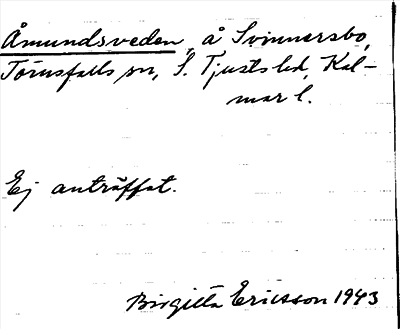 Åmundsveden, å Svinnersbo,
Törnsfalls sn, S. Tjusts hd, Kal-
mar l.
Ej anträffat.
Birgitta Ericsson 1943